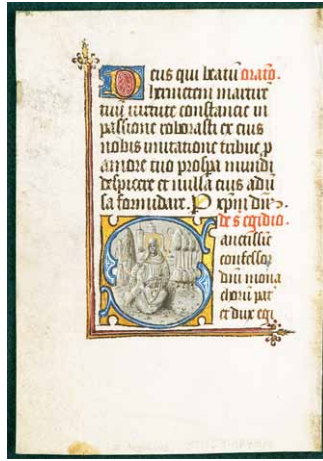 Deus qui beatū oratō.
hermetem martirē
tuū uirtute constancie in
passione roborasti ex eius
nobis imitatione tribue p
amore tuo prospa mundi
despicere et nulla eius aduer
sa formidare. P xpm dnm
de s egidio.
Sanctissīe
confessor
dni mona
choru pat
et dux egi